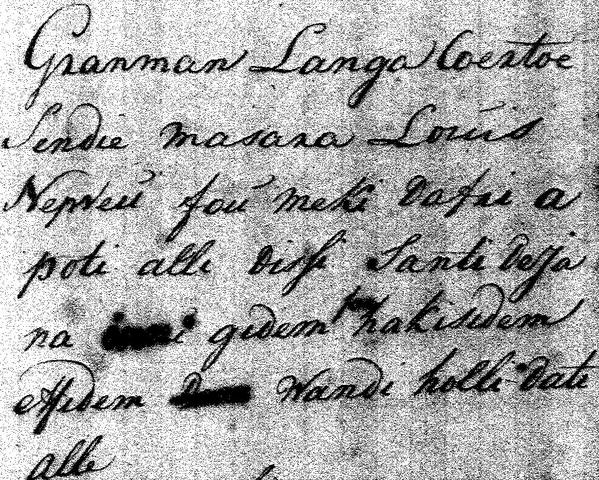 Granman Langa Coertoe
Sendie masara Louis
Nepveú foú meki dafri a
poti alle dissi Santi deja
na gidem fou hakisidem
effidem wandi holli dati
alle